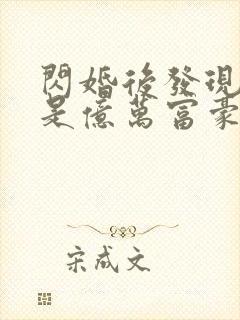 閃婚後發現
是億萬富豪
宋成文